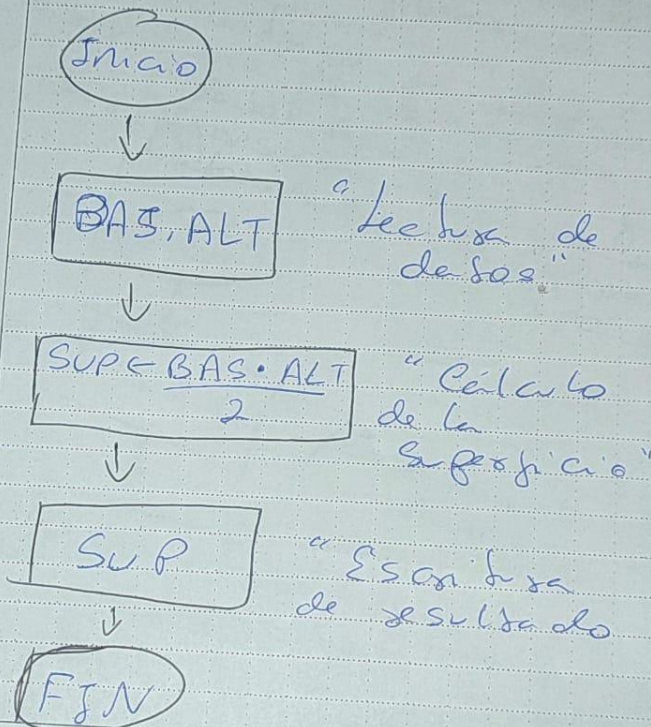 Inicio
BAS, ALT
"Lectura de
datos"
SUP ← BAS · ALT
2
"Cálculo
de la
Superficie"
SUP
"Escritura
de resultado
FIN